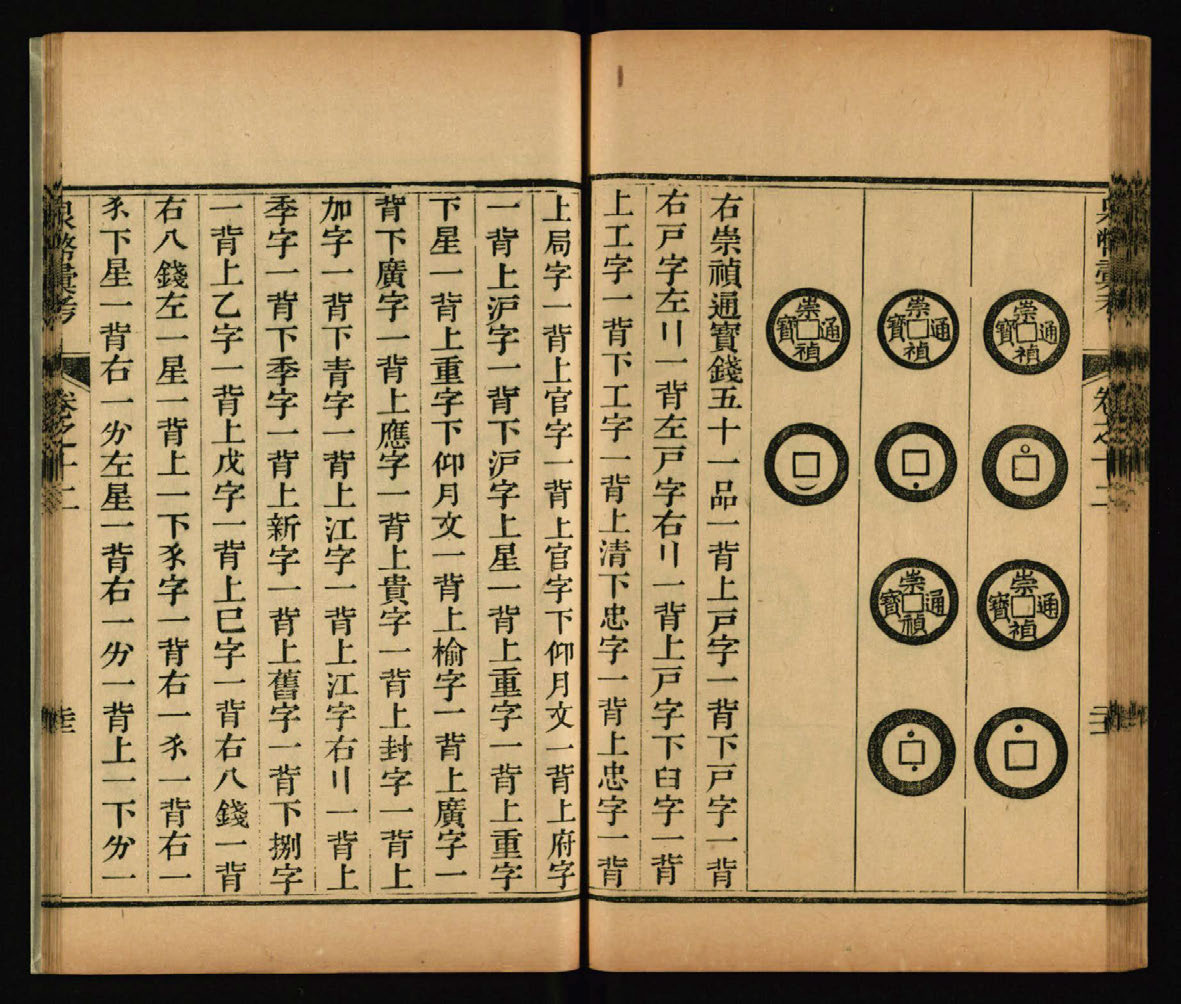 泉幣彙考 卷之十二
崇禎通寶
崇禎通寶
崇禎通寶
崇禎通寶
崇禎通寶
右崇禎通寶錢五十一品一背上戸字一背下戸字一背
右戸字左〢一背左戸字右〢一背上戸字下臼字一背
上工字一背下工字一背上清下忠字一背上忠字一背
上局字一背上官字一背上官字下仰月文一背上府字
一背上沪字一背下沪字上星一背上重字一背上重字
下星一背上重字下仰月文一背上榆字一背上廣字一
背下廣字一背上應字一背上貴字一背上封字一背上
加字一背下青字一背上江字一背上江字右〢一背上
季字一背下季字一背上新字一背上舊字一背下捌字
一背上乙字一背上戊字一背上巳字一背右八錢一背
右八錢左一星一背上一下豕字一背右一豕一背右一
豕下星一背右一分左星一背右一分一背上一下分一
泉幣彙考 卷之十二